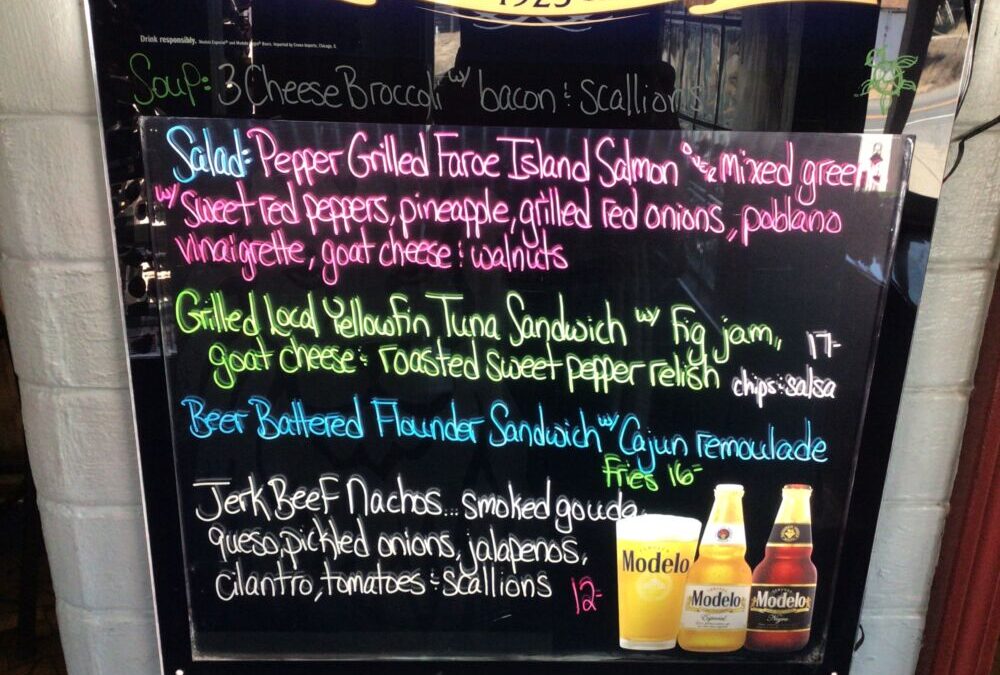 1925
Drink responsibly.
Soup: 3 Cheese Broccoli w/ bacon & scallions
Salad: Pepper Grilled Faroe Island Salmon over mixed greens
w/ sweet red peppers, pineapple, grilled red onions, poblano
vinaigrette, goat cheese & walnuts
Grilled Local Yellowfin Tuna Sandwich w/ fig jam,
goat cheese & roasted sweet pepper relish
17-
chips & salsa
Beer Battered Flounder Sandwich w/ Cajun remoulade
Fries 16-
Jerk Beef Nachos... smoked gouda
queso, pickled onions, jalapenos,
cilantro, tomatoes & scallions 12-
Modelo
Modelo
Especial
Modelo
Negra